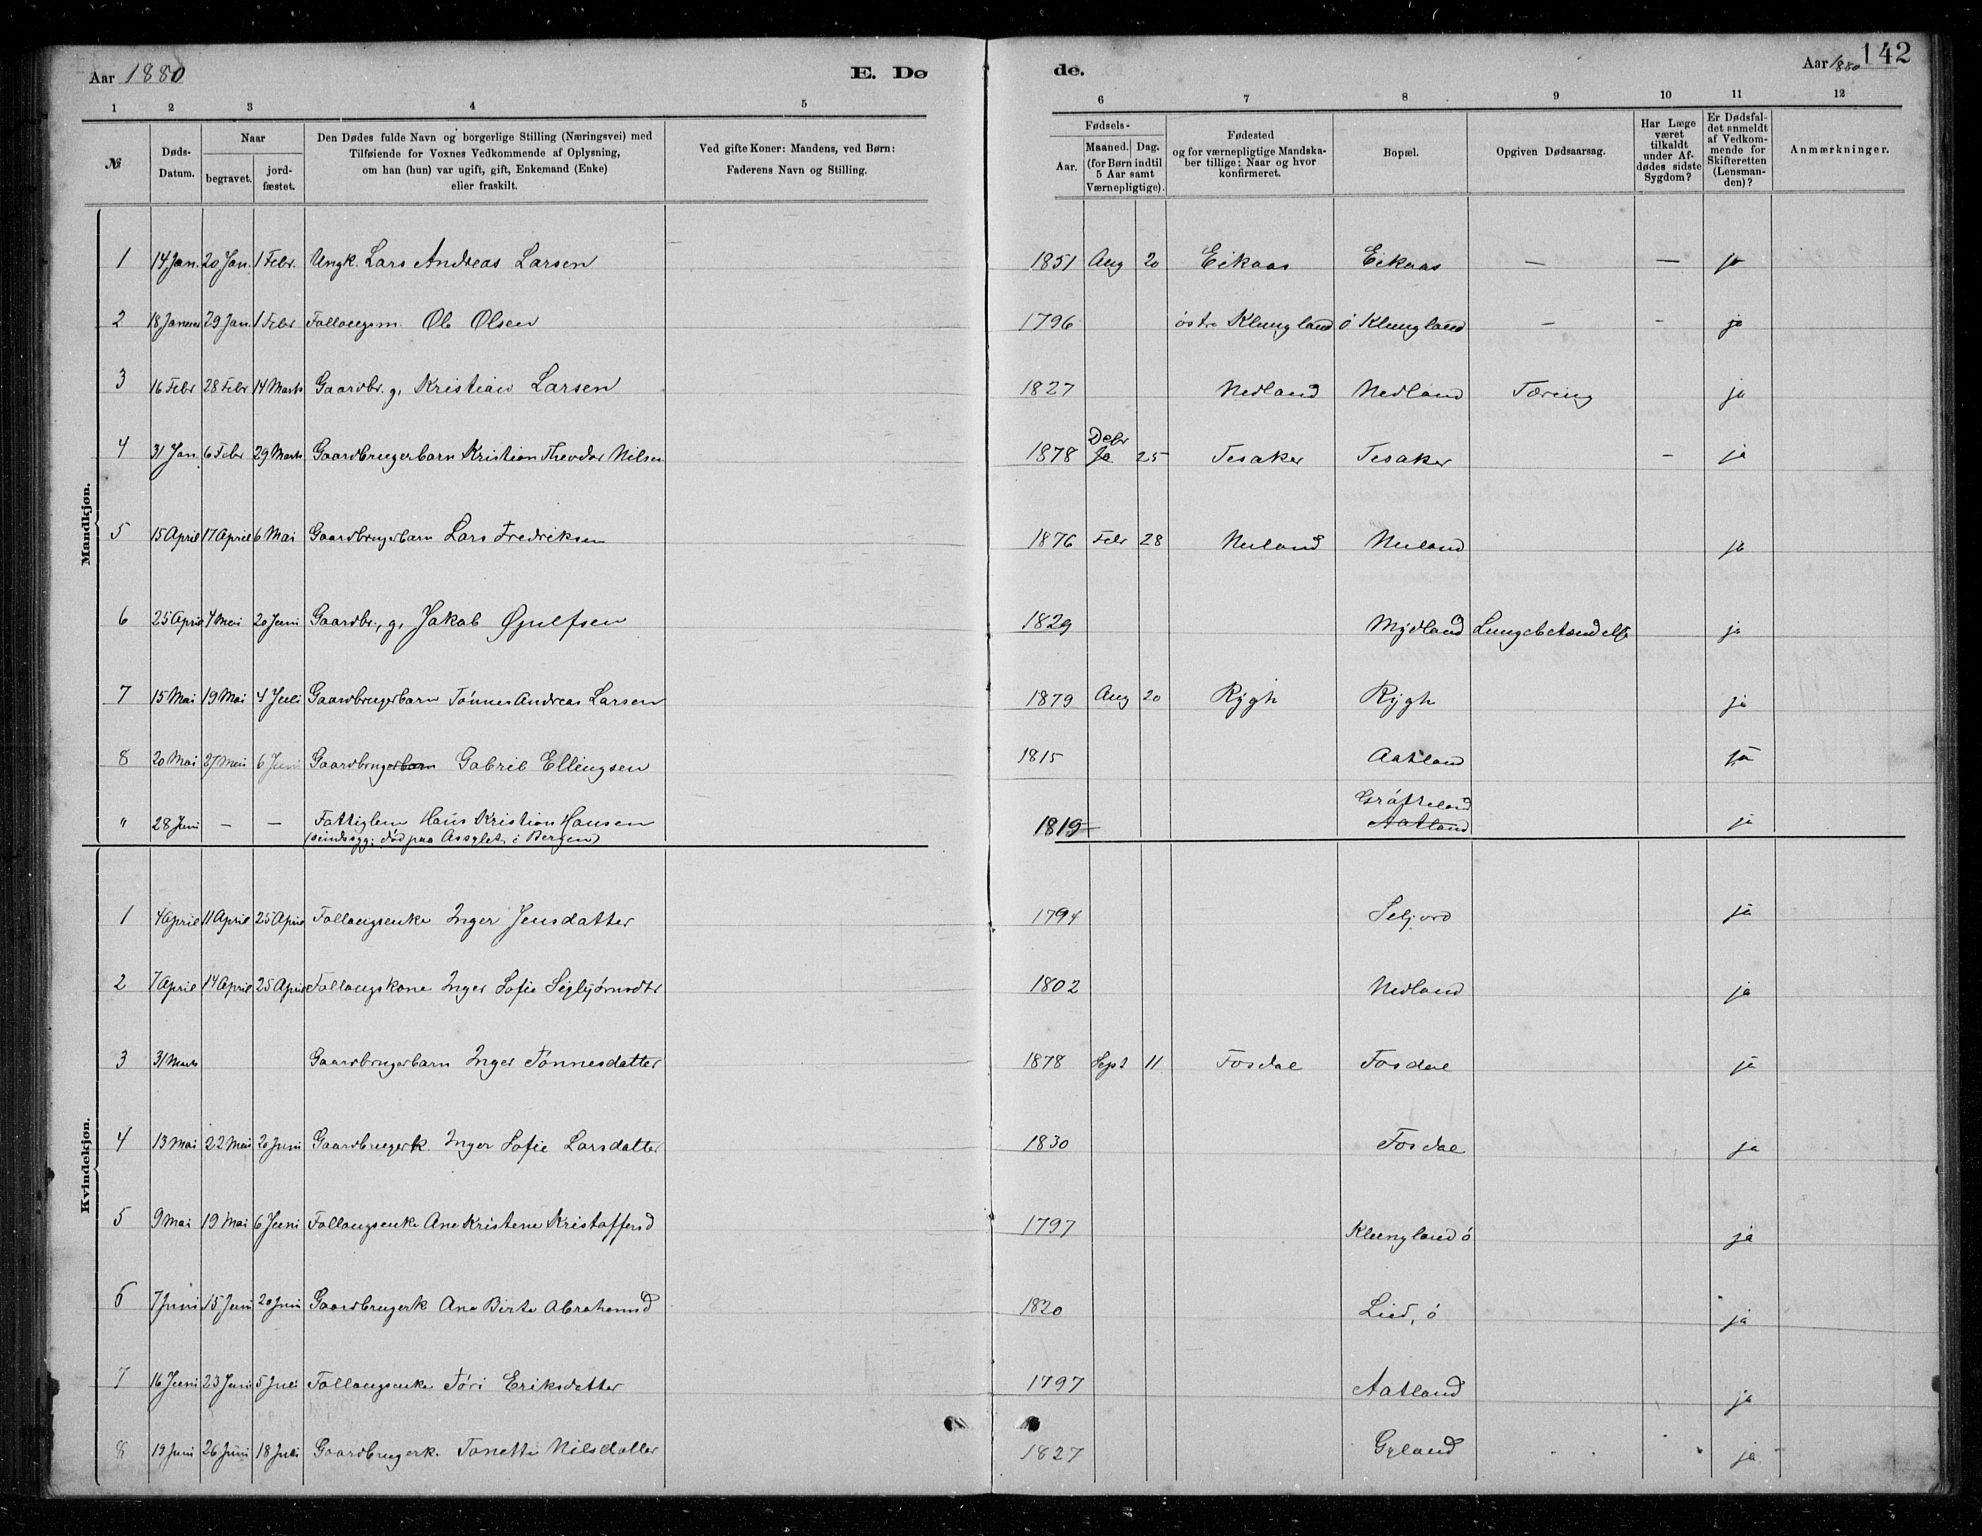 Aar 1880 E. Dø
de. Aar 1880 142
1 2 3 4 5 6 7 8 9 10 11 12
№ Døds-Datum. Naar begravet. jord-fæstet. Den Dødes fulde Navn og borgerlige Stilling (Næringsvei) med Tilføiende for Voxnes Vedkommende af Oplysning, om han (hun) var ugift, gift, Enkemand (Enke) eller fraskilt. Ved gifte Koner: Mandens, ved Børn: Faderens Navn og Stilling. Fødsels- Aar. Maaned. Dag. (for Børn indtil 5 Aar samt Værnepligtige). Fødested og for værnepligtige Mandskaber tillige: Naar og hvor konfirmeret. Bopæl. Opgiven Dødsaarsag. Har Læge været tilkaldt under Afdødes sidste Sygdom? Er Dødsfaldet anmeldt af Vedkommende for Skifteretten (Lensmanden)? Anmærkninger.
Mandkjøn.
1 14 Jan. 20 Jan. 1 Febr. Ungk. Lars Andreas Larsen 1851 Aug 20 Eikaas Eikaas — — ja
2 18 Januar 29 Jan. 1 Febr Follaugsm. Ole Olsen 1796 østre Klungland ø Klungland — - ja
3 16 Febr 28 Febr 14 Marts Gaardbr. g. Kristian Larsen 1827 Nedland Nedland Tæring ja
4 31 Jan 6 Febr 29 Marts Gaardbrugerbarn Kristian Theodor Nilsen 1878 Debr Ja 25 Tesaker Tesaker - ja
5 15 April 17 April 6 Mai Gaardbrugerbarn Lars Fredriksen 1876 Febr 28 Nuland Nuland ja
6 25 April 4 Mai 20 Juni Gaardbr., g. Jakob Øjulfsen 1829 Mydland Lungebetændelse ja
7 15 Mai 19 Mai 4 Juli Gaardbrugerbarn Tønnes Andreas Larsen 1879 Aug 20 Rygh Rygh ja
8 20 Mai 27 Mai 6 Juni Gaardbrugerbarn Gabriel Ellingsen 1815 Aatland ja
" 28 Juni — — Fattiglem Hans Kristian Hansen 1819 Gråtteland Aatland ja
(sindssyg; død paa Assylet i Bergen)
Kvindekjøn.
1 4 April 11 April 25 April Follaugsenke Inger Jensdatter 1794 Seljord ja
2 7 April 14 April 25 April Follaugskone Inger Sofie Sigbjørnsdtr 1802 Nedland ja
3 31 Marts Gaardbrugerbarn Inger Tønnesdatter 1878 Sept 11 Fosdal Fosdal ja
4 13 Mai 22 Mai 20 Juni Gaardbrugerk. Inger Sofie Larsdatter 1830 Fosdal ja
5 9 Mai 19 Mai 6 Juni Follaugsenke Ane Kristene Kristoffersd 1797 Klungland ø ja
6 7 Juni 15 Juni 20 Juni Gaardbrugerk Ane Birte Abrahamsd 1820 Lied, ø ja
7 16 Juni 23 Juni 5 Juli Follaugsenke Tøri Eriksdatter 1797 Aatland ja
8 19 Juni 26 Juni 18 Juli Gaardbrugerk. Tonette Nilsdatter 1827 Gyland ja